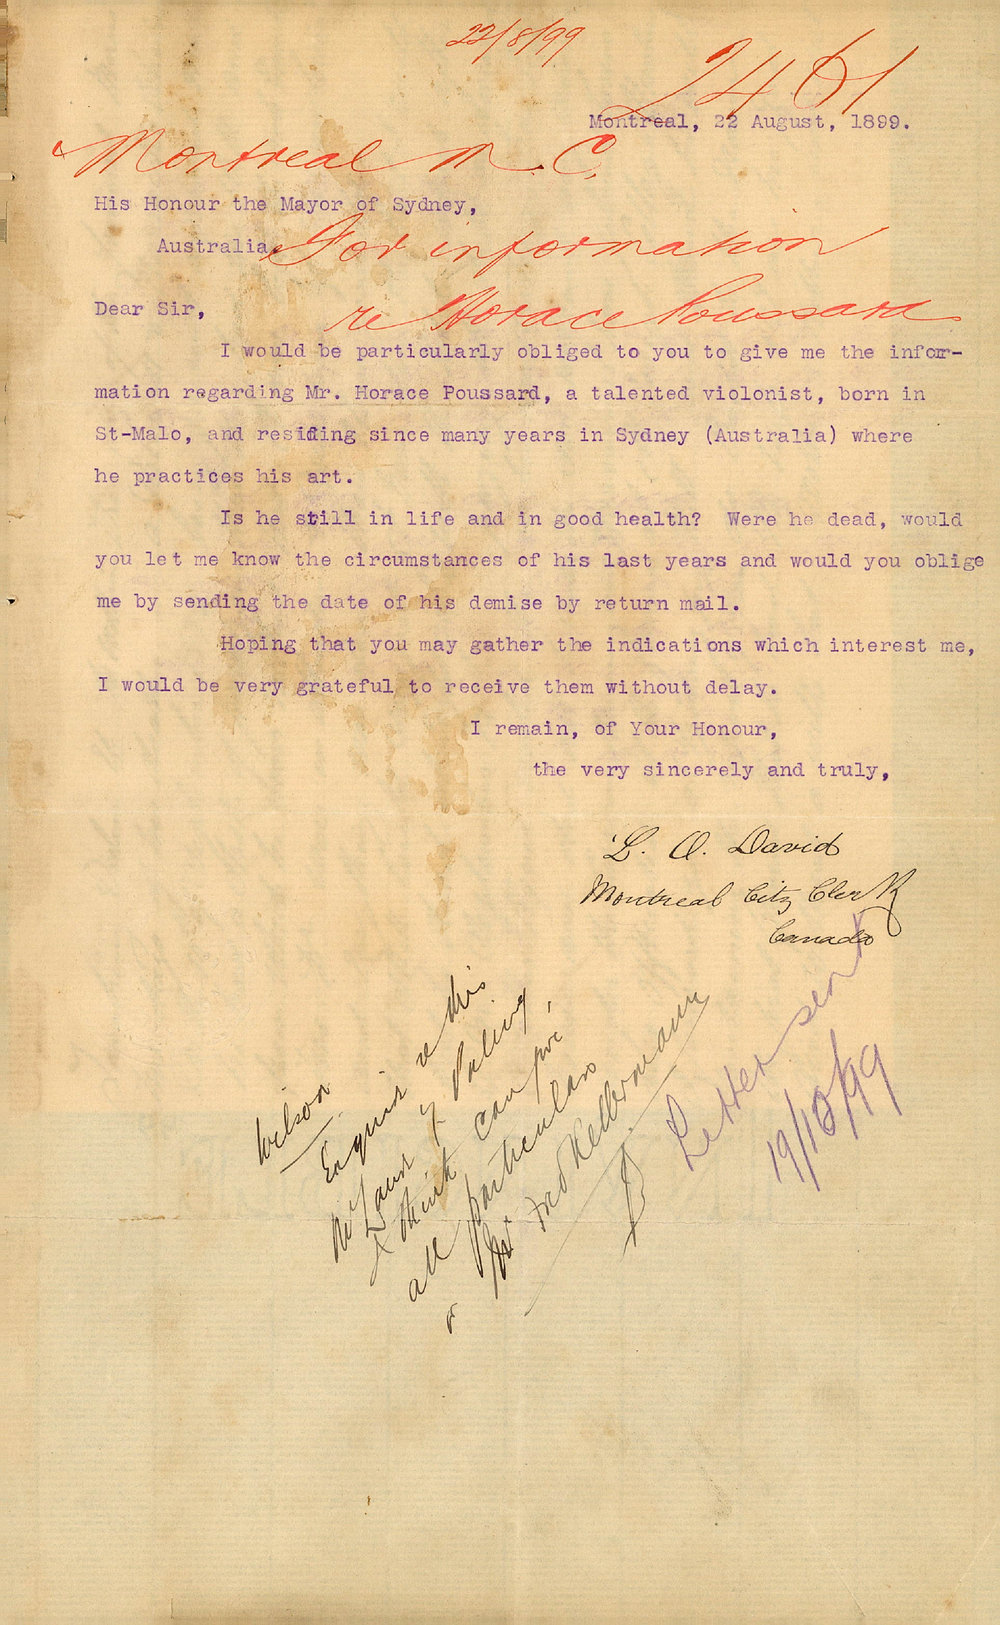 22/8/99
2461
Montreal, 22 August, 1899.
Montreal M. C.
His Honour the Mayor of Sydney,
Australia.
For information
Dear Sir,
re Horace Poussard
I would be particularly obliged to you to give me the infor-
mation regarding Mr. Horace Poussard, a talented violonist, born in
St-Malo, and residing since many years in Sydney (Australia) where
he practices his art.
Is he still in life and in good health? Were he dead, would
you let me know the circumstances of his last years and would you oblige
me by sending the date of his demise by return mail.
Hoping that you may gather the indications which interest me,
I would be very grateful to receive them without delay.
I remain, of Your Honour,
the very sincerely and truly,
L. O. David
Montreal City Clerk
Canada
Letter sent
19/10/99
Wilson
Enquire this
Paling
think can give
all particulars
or Mr Kellermann